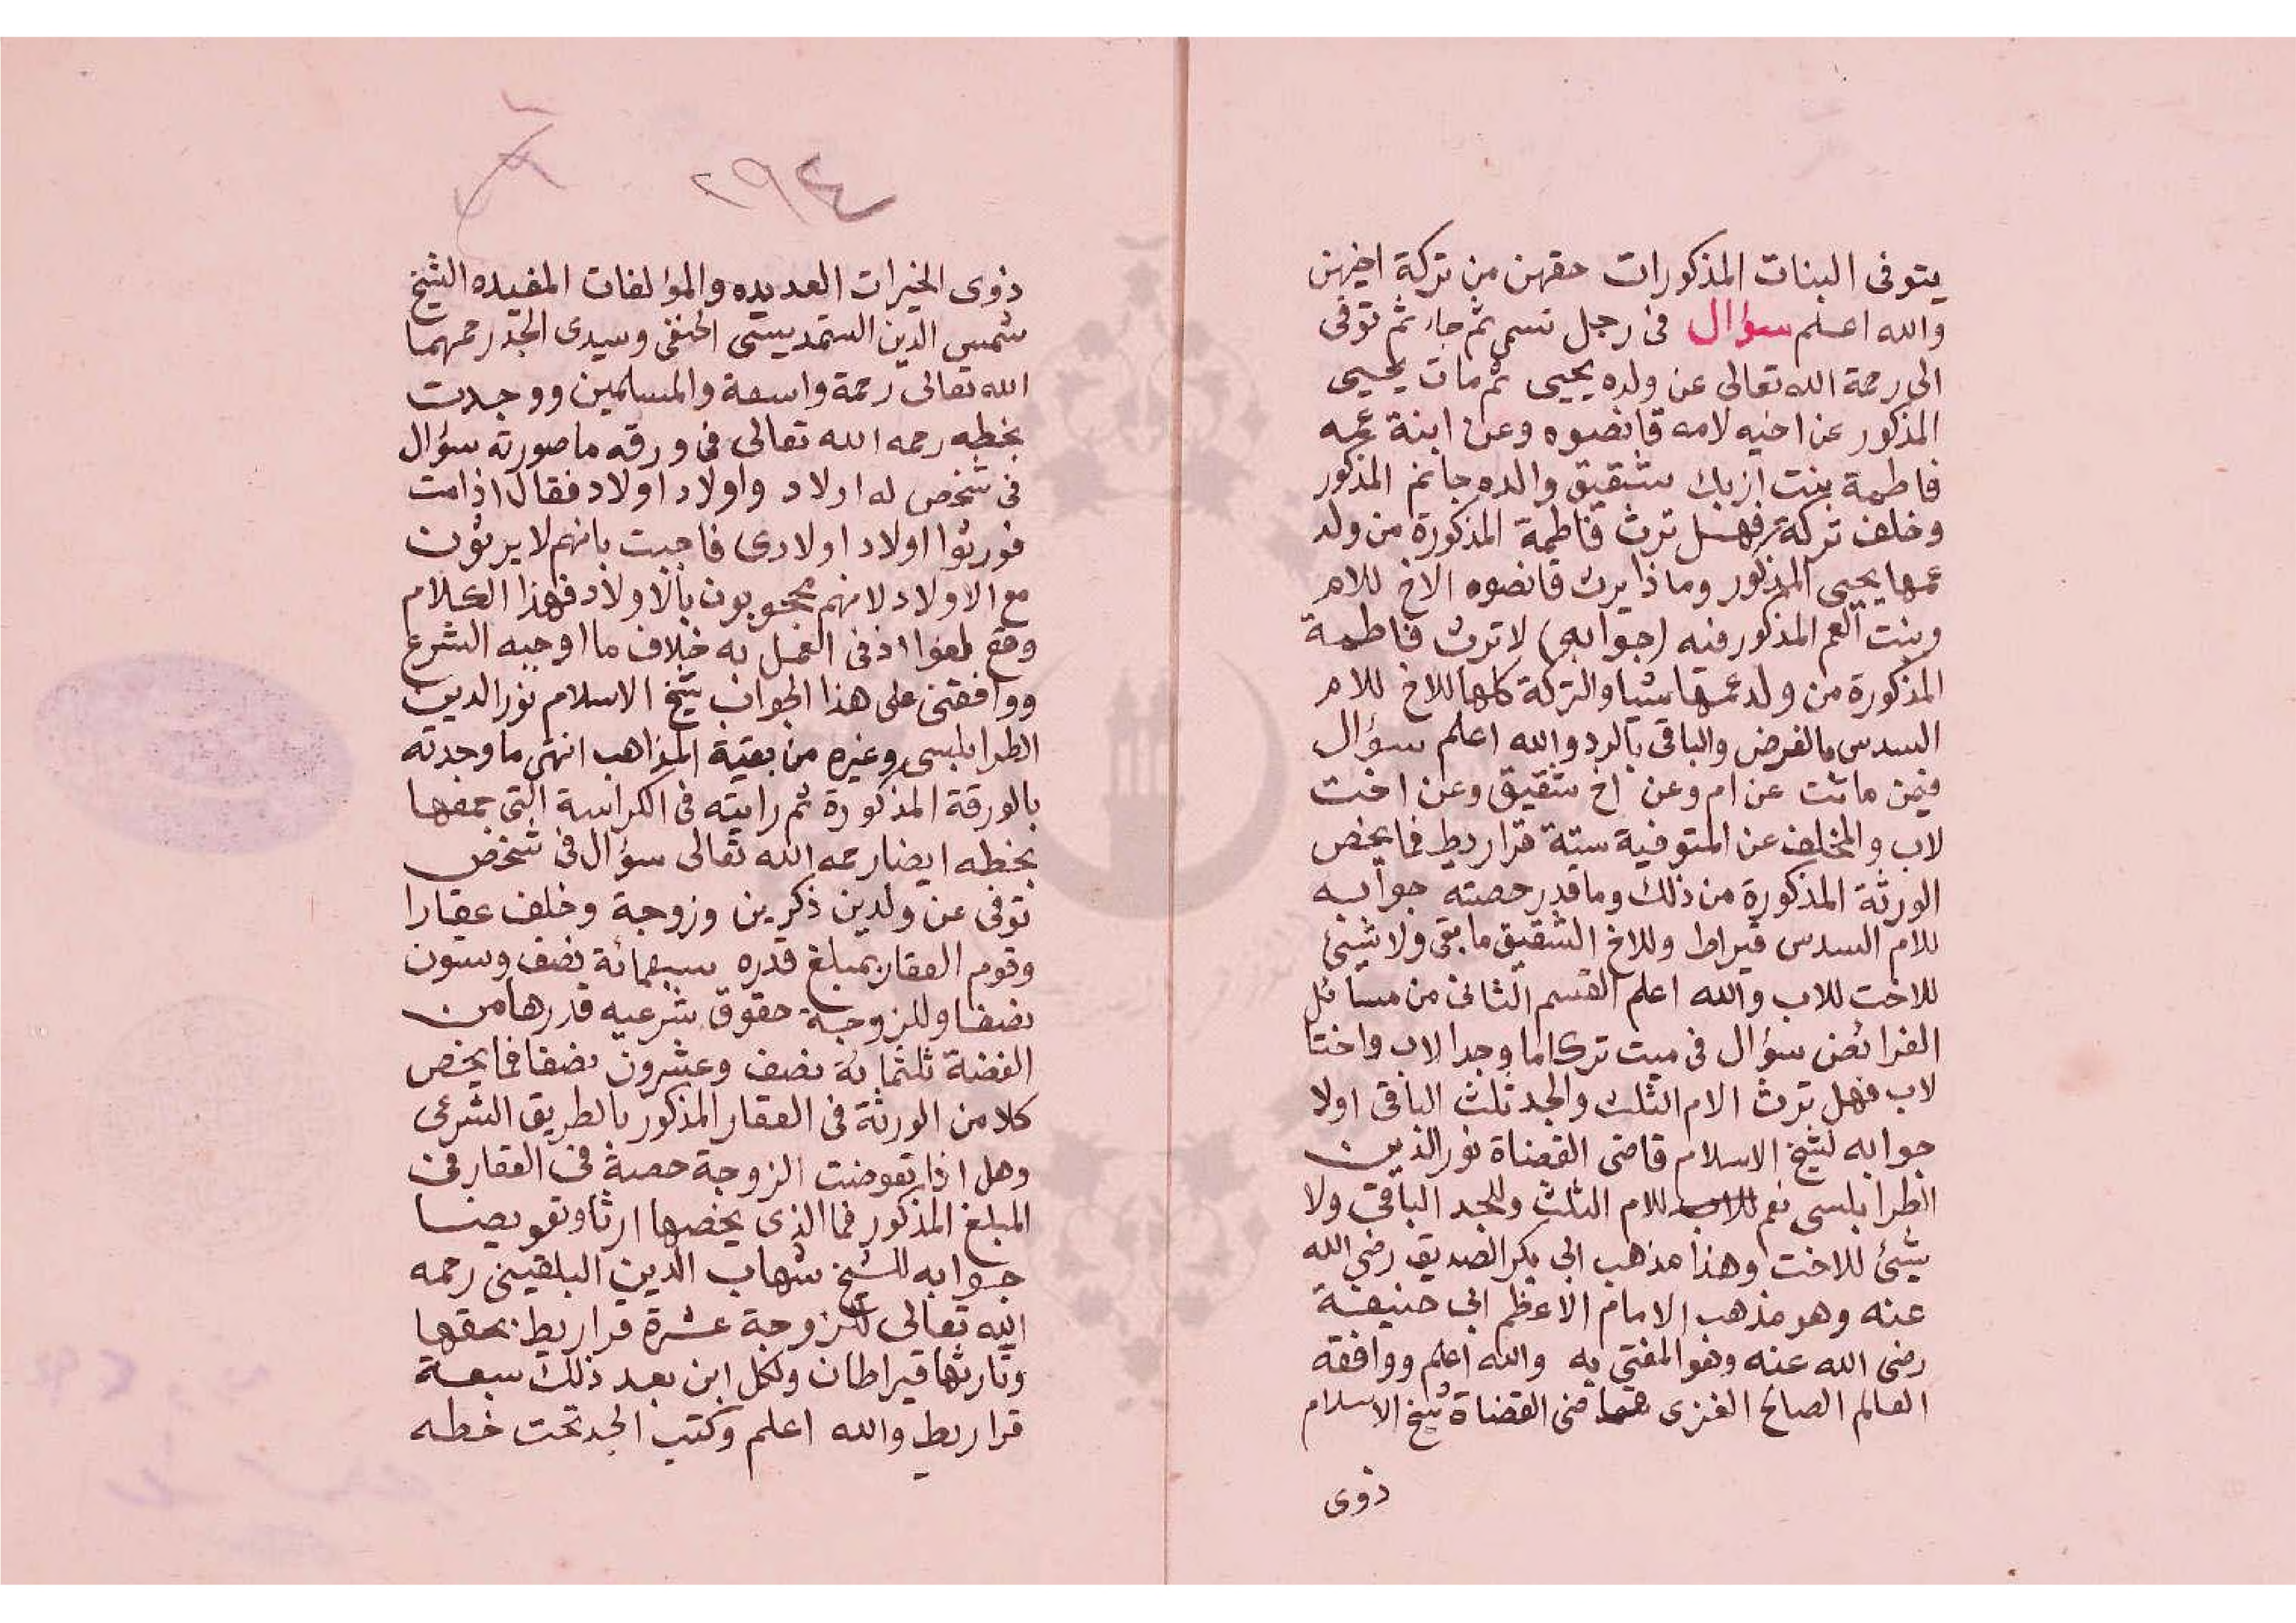 يتوفى البنات المذكورات حقهن من تركة اخيهن
والله اعلم سؤال فى رجل تسمى ثم جاء ثم توفى
الى رحمة الله تعالى عن ولده يحيى ثم مات يحيى
المذكور عن اخيه لامه قانصوه وعن ابنة عمه
فاطمة بنت ازبك شقيق والده جانم المذكور
وخلف تركة فهل ترث فاطمة المذكورة من ولد
عمها يحيى المذكور وماذا يرث قانصوه الاخ للام
وبنت العم المذكور فيه (جوابه) لا ترث فاطمة
المذكورة من ولد عمها شيا والتركة كلها للاخ للام
السدس بالفرض والباقى بالرد والله اعلم سؤال
فيمن ماتت عن ام وعن اخ شقيق وعن اخت
لاب والمخلف عن المتوفية ستة قراريط فما يخص
الورثة المذكورة من ذلك وما قدر حصته جوابه
للام السدس قيراطا وللاخ الشقيق ما بقى ولا شيئ
للاخت للاب والله اعلم القسم الثانى من مسائل
الفرائض سؤال فى ميت ترك اما وجدا لاب واختا
لاب فهل ترث الام الثلث والجد ثلث الباقى اولا
جوابه لشيخ الاسلام قاضى القضاة نور الدين
الطرابلسى نعم للام الثلث وللجد الباقى ولا
شيئ للاخت وهذا مذهب ابى بكر الصديق رضى الله
عنه وهو مذهب الامام الاعظم ابى حنيفة
رضى الله عنه وهو المفتى به والله اعلم ووافقه
العالم الصالح الغزى قاضى القضاة شيخ الاسلام
ذوى
٢٩٤
ذوى الخيرات العديده والمؤلفات المفيده الشيخ
شمس الدين السمديسى الحنفى وسيدى الجد رحمهما
الله تعالى رحمة واسعة والمسلمين ووجدت
بخطه رحمه الله تعالى فى ورقه ما صورته سؤال
فى شخص له اولاد واولاد اولاد فقال اذا مت
فورثوا اولاد اولادى فاجبت بانهم لا يرثون
مع الاولاد لانهم محجوبون بالاولاد فهذا الكلام
وقع لغوا اذ فى العمل به خلاف ما اوجبه الشرع
ووافقنى على هذا الجواب شيخ الاسلام نور الدين
الطرابلسى وغيره من بقية المذاهب انتهى ما وجدته
بالورقة المذكورة ثم رايته فى الكراسة التى جمعها
بخطه ايضا رحمه الله تعالى سؤال فى شخص
توفى عن ولدين ذكرين وزوجة وخلف عقارا
وقوم العقار بمبلغ قدره سبعمائة نصف وستون
نصفا وللزوجة حقوق شرعيه قدرها من
الفضة ثلثمائة نصف وعشرون نصفا فما يخص
كلا من الورثة فى العقار المذكور بالطريق الشرعى
وهل اذا تعوضت الزوجة حصة فى العقار فى
المبلغ المذكور فما الذى يخصها ارثا وتعويضا
جوابه للشيخ شهاب الدين البلقينى رحمه
الله تعالى للزوجة عشرة قراريط بحقها
وتارثها قيراطان ولكل ابن بعد ذلك سبعة
قراريط والله اعلم وكتب الجد تحت خطه